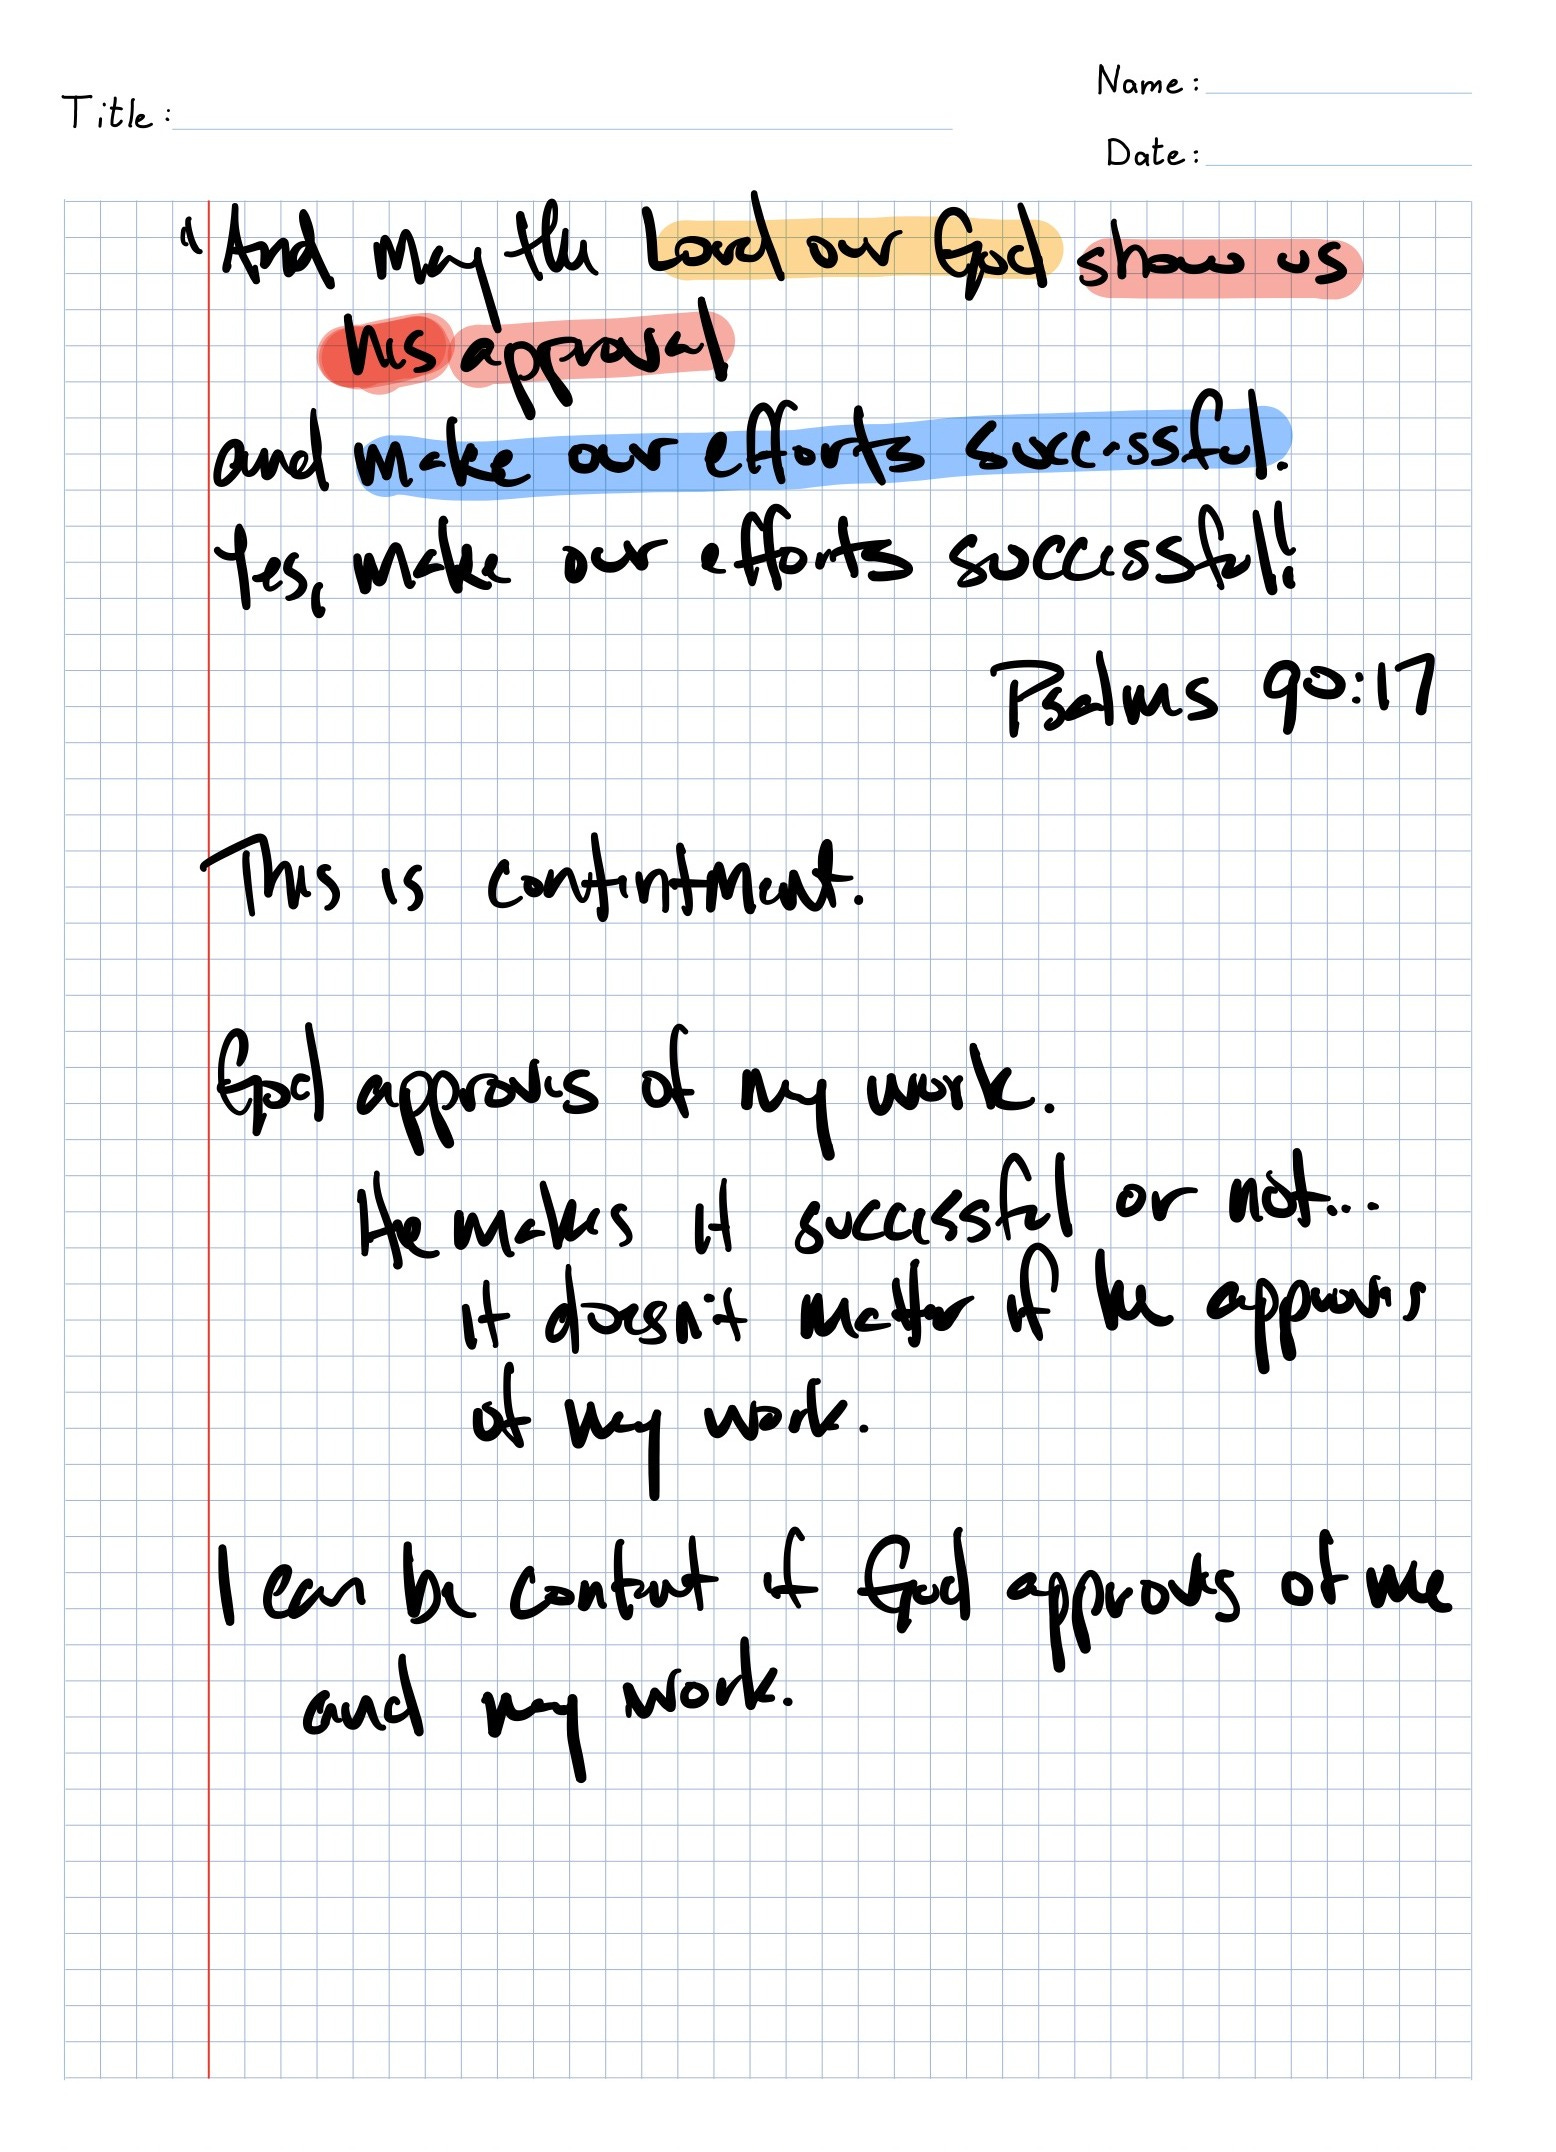 Name:
Title:
Date:
"And may the Lord our God show us
his approval
and make our efforts successful.
Yes, make our efforts successful!
Psalms 90:17
This is contentment.
God approves of my work.
He makes it successful or not...
it doesn't matter if he approves
of my work.
I can be content if God approves of me
and my work.